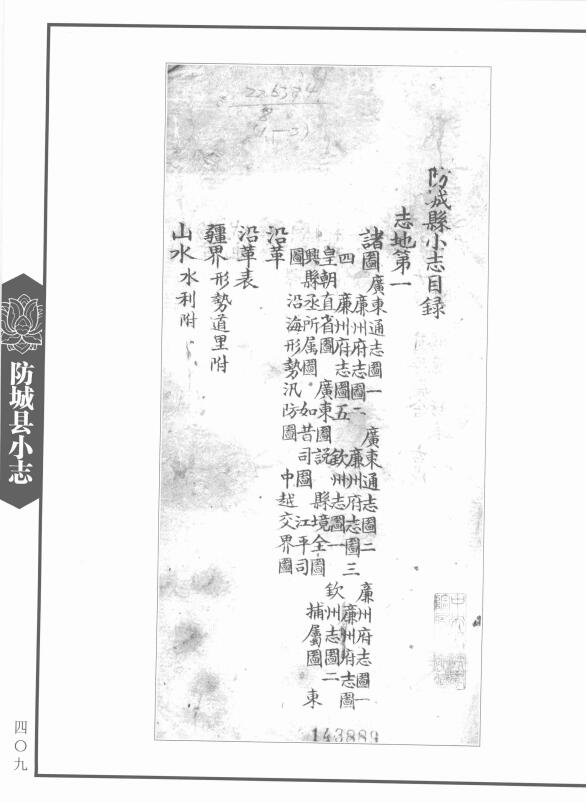 226374
8
(1—3)
防城縣小志目錄
志地第一
諸圖 廣東通志圖一 廣東通志圖二 廉州府志圖一
廉州府志圖二 廉州府志圖三 廉州府志圖
四 廉州府志圖五 欽州志圖一 欽州志圖二
皇朝直省圖 廣東圖説 縣境全圖 捕屬圖 東
興縣丞所属圖 如昔司圖 江平司
圖 沿海形勢汛防圖 中越交界圖
沿革
沿革表
疆界 形勢道里附
山水 水利附
143889
防城县小志
四〇九